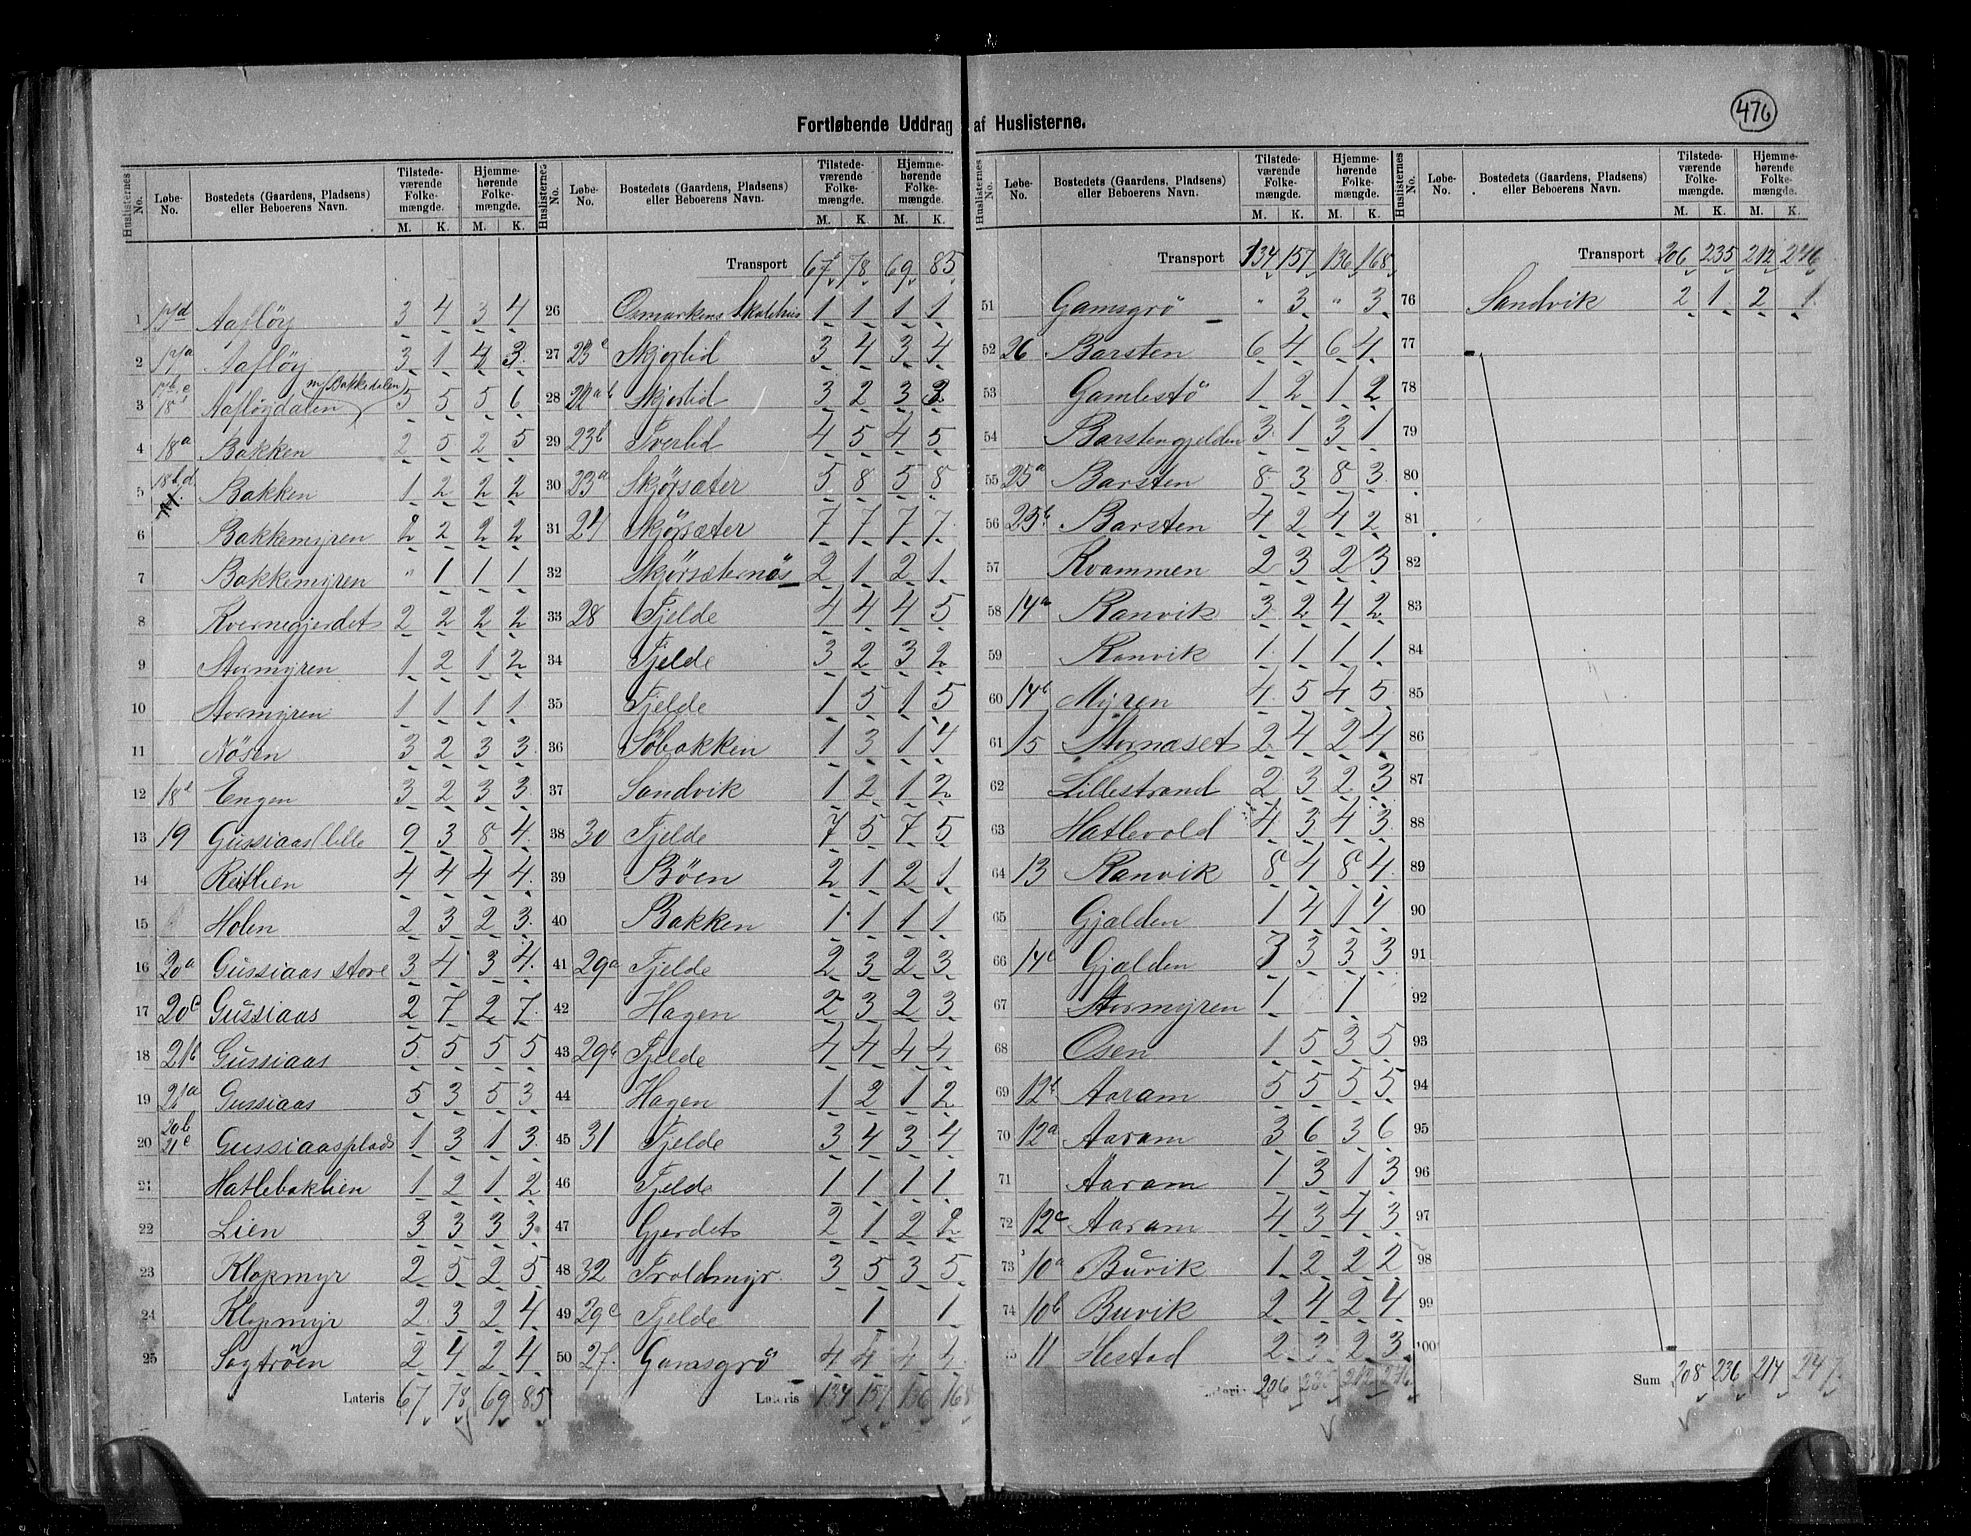 476
Fortløbende Uddrag af Huslisterne.
Huslisternes No. | Løbe-No. | Bostedets (Gaardens, Pladsens) eller Beboerens Navn. | Tilstedeværende Folkemængde. M. K. | Hjemmehørende Folkemængde. M. K.
1 Aafløy 3 4 3 4
2 Aafløy 3 1 4 3
3 Aafløydalen m/Bakkedalen 5 5 5 6
4 18a Bakken 2 5 2 5
5 Bakken 1 2 2 2
6 Bakkemyren 2 2 2 2
7 Bakkemyren " 1 1 1
8 Kvernegjerdet 2 2 2 2
9 Stormyren 1 2 1 2
10 Stormyren 1 1 1 1
11 Nösen 3 2 3 3
12 Engen 3 2 3 3
13 19 Gussiaas lille 9 3 8 4
14 Reitlien 4 4 4 4
15 Holen 2 3 2 3
16 20a Gussiaas store 3 4 3 4
17 20c Gussiaas 2 7 2 7
18 21b Gussiaas 5 5 5 5
19 21a Gussiaas 5 3 5 3
20 20b 21c Gussiaasplads 1 3 1 3
21 Hatlebaklien 1 2 1 2
22 Lien 3 3 3 3
23 Klopmyr 2 5 2 5
24 Klopmyr 2 3 2 4
25 Sagtröen 2 4 2 4
Lateris 67 78 69 85
Huslisternes No. | Løbe-No. | Bostedets (Gaardens, Pladsens) eller Beboerens Navn. | Tilstedeværende Folkemængde. M. K. | Hjemmehørende Folkemængde. M. K.
Transport 67 78 69 85
26 Osmarkens Skolehus 1 1 1 1
27 23c Skjorlid 3 4 3 4
28 22ab Skjorlid 3 2 3 3
29 23b Tverlid 4 5 4 5
30 23a Skjörsæter 5 8 5 8
31 24 Skjörsæter 7 7 7 7
32 Skjörsæternös 2 1 2 1
33 28 Fjelde 4 4 4 5
34 Fjelde 3 2 3 2
35 Fjelde 1 5 1 5
36 Söbakken 1 3 1 4
37 Sandvik 1 2 1 2
38 30 Fjelde 7 5 7 5
39 Böen 2 1 2 1
40 Bakken 1 1 1 1
41 29a Fjelde 2 3 2 3
42 Hagen 2 3 2 3
43 29b Fjelde 4 4 4 4
44 Hagen 1 2 1 2
45 31 Fjelde 3 4 3 4
46 Fjelde 1 1 1 1
47 Gjerdet 2 1 2 2
48 32 Troldmyr 3 5 3 5
49 29c Fjelde 1 1
50 27 Gamsgrö 4 4 4 4
Lateris 134 157 136 168
Huslisternes No. | Løbe-No. | Bostedets (Gaardens, Pladsens) eller Beboerens Navn. | Tilstedeværende Folkemængde. M. K. | Hjemmehørende Folkemængde. M. K.
Transport 134 157 136 168
51 Gamsgrö " 3 " 3
52 26 Barsten 6 4 6 4
53 Gamlestö 1 2 1 2
54 Barstengjelden 3 1 3 1
55 25a Barsten 8 3 8 3
56 25b Barsten 4 2 4 2
57 Kvammen 2 3 2 3
58 14a Ranvik 3 2 4 2
59 Ranvik 1 1 1 1
60 14b Myren 4 5 4 5
61 15 Stornæset 2 4 2 4
62 Lillestrand 2 3 2 3
63 Hatlevold 4 3 4 3
64 13 Ranvik 8 4 8 4
65 Gjalden 1 4 1 4
66 14c Gjalden 3 3 3 3
67 Stormyren 1 1
68 Osen 1 5 3 5
69 12b Aaram 5 5 5 5
70 12a Aaram 3 6 3 6
71 Aaram 1 3 1 3
72 12c Aaram 4 3 4 3
73 10a Buvik 1 2 2 2
74 10b Buvik 2 4 2 4
11 Hestad 2 3 2 3
206 235 212 246
Huslisternes No. | Løbe-No. | Bostedets (Gaardens, Pladsens) eller Beboerens Navn. | Tilstedeværende Folkemængde. M. K. | Hjemmehørende Folkemængde. M. K.
Transport 206 235 212 246
76 Sandvik 2 1 2 1
77
78
79
80
81
82
83
84
85
86
87
88
89
90
91
92
93
94
95
96
97
98
99
100
Sum 208 236 214 247